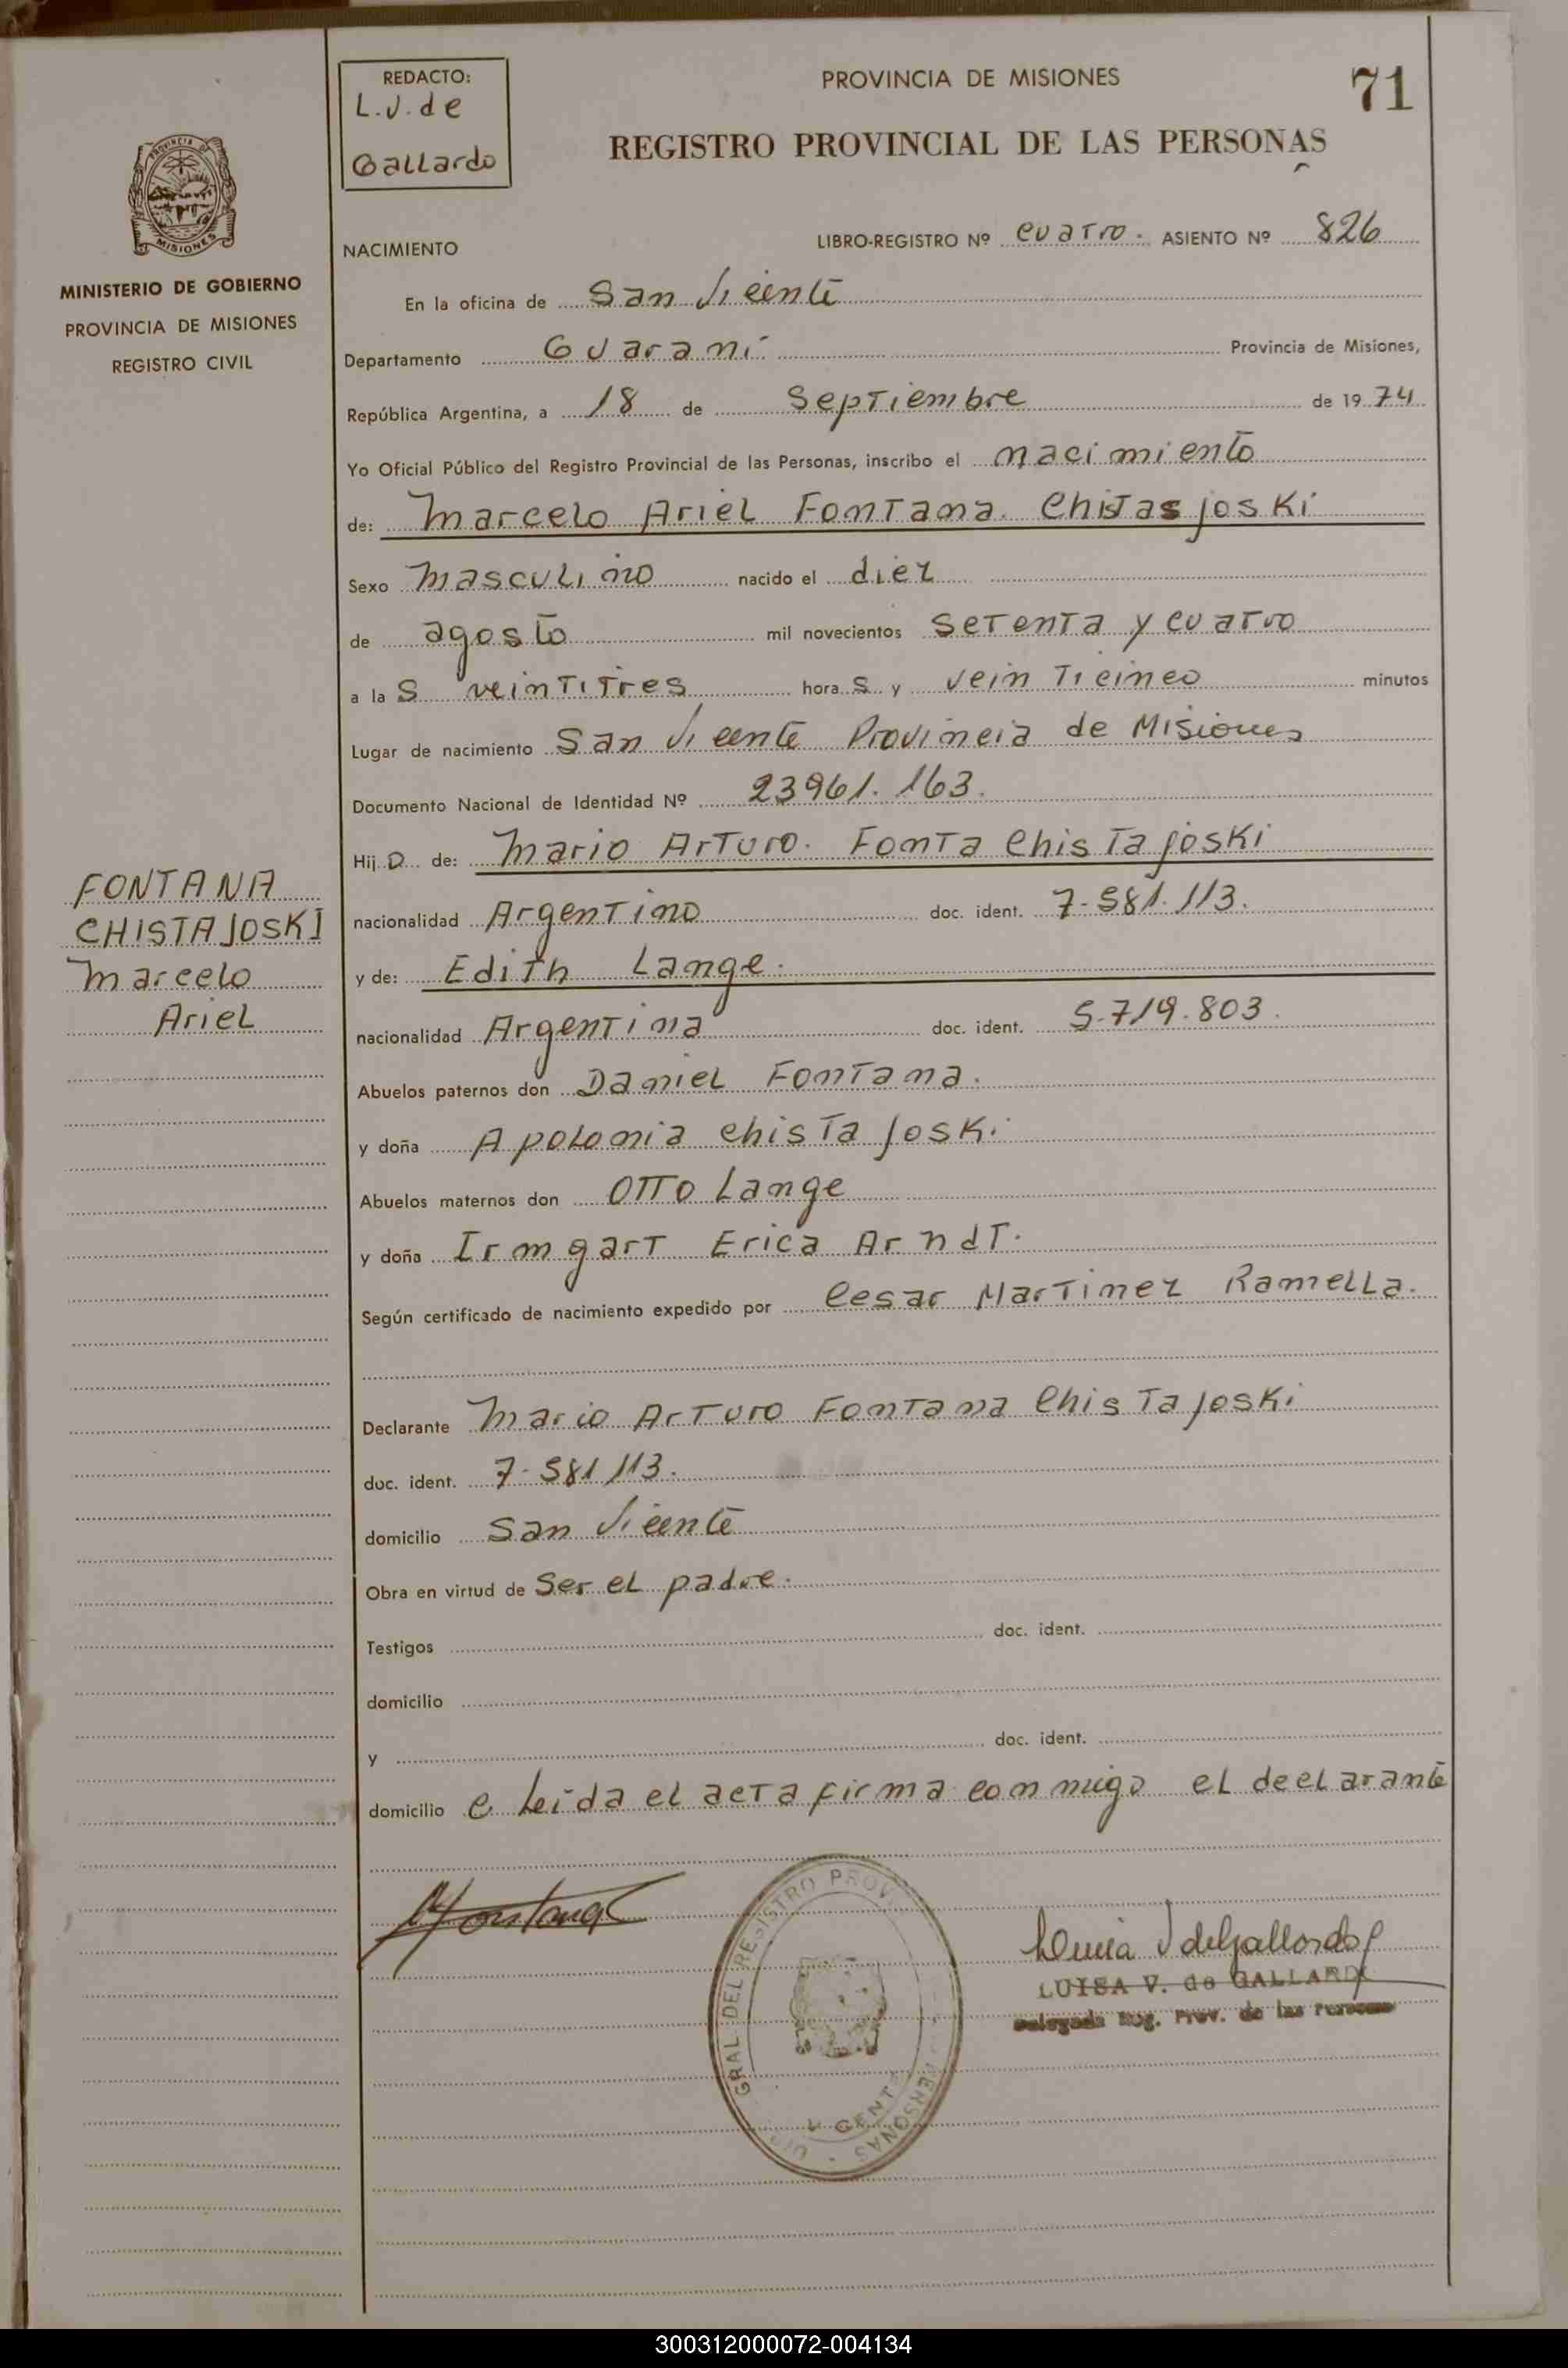 REDACTO:
L.V. de
Gallardo
PROVINCIA DE MISIONES
71
REGISTRO PROVINCIAL DE LAS PERSONAS
PROVINCIA DE
MISIONES
MINISTERIO DE GOBIERNO
PROVINCIA DE MISIONES
REGISTRO CIVIL
NACIMIENTO
LIBRO-REGISTRO Nº cuatro. ASIENTO Nº 826
En la oficina de San Vicente
Departamento Guaraní Provincia de Misiones,
República Argentina, a 18 de Septiembre de 1974
Yo Oficial Público del Registro Provincial de las Personas, inscribo el nacimiento
de: Marcelo Ariel Fontana Chistasjoski
Sexo Masculino nacido el diez
de agosto mil novecientos setenta y cuatro
a las veintitres horas y veinticinco minutos
Lugar de nacimiento San Vicente Provincia de Misiones
Documento Nacional de Identidad Nº 23961.163.
Hijo de: Mario Arturo. Fonta Chistajoski
nacionalidad Argentino doc. ident. 7-581.113.
y de: Edith Lange.
nacionalidad Argentina doc. ident. 5.719.803.
Abuelos paternos don Daniel Fontana.
y doña Apolonia Chistajoski
Abuelos maternos don Otto Lange
y doña Irmgart Erica Arndt.
Según certificado de nacimiento expedido por Cesar Martinez Ramella.
Declarante Mario Arturo Fontana Chistajoski
doc. ident. 7-581113.
domicilio San Vicente
Obra en virtud de Ser el padre.
Testigos doc. ident.
domicilio
y doc. ident.
domicilio e Leida el acta firma conmigo el declarante
FONTANA
CHISTAJOSKI
Marcelo
Ariel
GRAL DEL REGISTRO PROV
PERSONAS
LUISA V. de GALLARDO
Delegada Reg. Prov. de las Personas
300312000072-004134